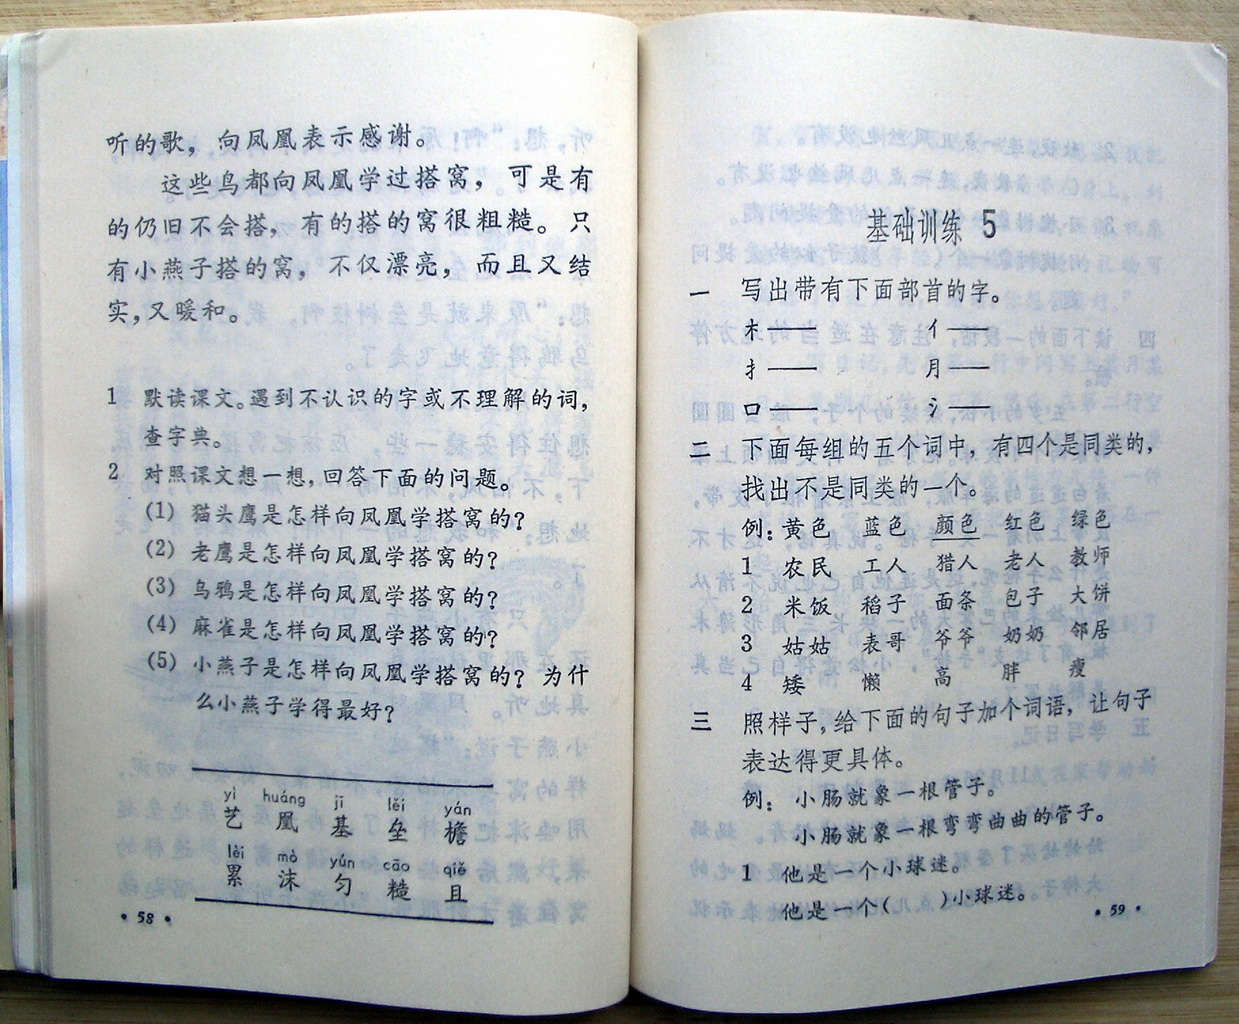 听的歌，向凤凰表示感谢。
这些鸟都向凤凰学过搭窝，可是有
的仍旧不会搭，有的搭的窝很粗糙。只
有小燕子搭的窝，不仅漂亮，而且又结
实，又暖和。
1 默读课文。遇到不认识的字或不理解的词，
查字典。
2 对照课文想一想，回答下面的问题。
(1) 猫头鹰是怎样向凤凰学搭窝的？
(2) 老鹰是怎样向凤凰学搭窝的？
(3) 乌鸦是怎样向凤凰学搭窝的？
(4) 麻雀是怎样向凤凰学搭窝的？
(5) 小燕子是怎样向凤凰学搭窝的？为什
么小燕子学得最好？
yì huáng jī lěi yán
艺 凰 基 垒 檐
lěi mò yún cāo qiě
累 沫 匀 糙 且
·58·
基础训练 5
一 写出带有下面部首的字。
木—— 亻——
扌—— 月——
口—— 氵——
二 下面每组的五个词中，有四个是同类的，
找出不是同类的一个。
例：黄色 蓝色 颜色 红色 绿色
1 农民 工人 猎人 老人 教师
2 米饭 稻子 面条 包子 大饼
3 姑姑 表哥 爷爷 奶奶 邻居
4 矮 懒 高 胖 瘦
三 照样子，给下面的句子加个词语，让句子
表达得更具体。
例：小肠就象一根管子。
小肠就象一根弯弯曲曲的管子。
1 他是一个小球迷。
他是一个( )小球迷。
·59·